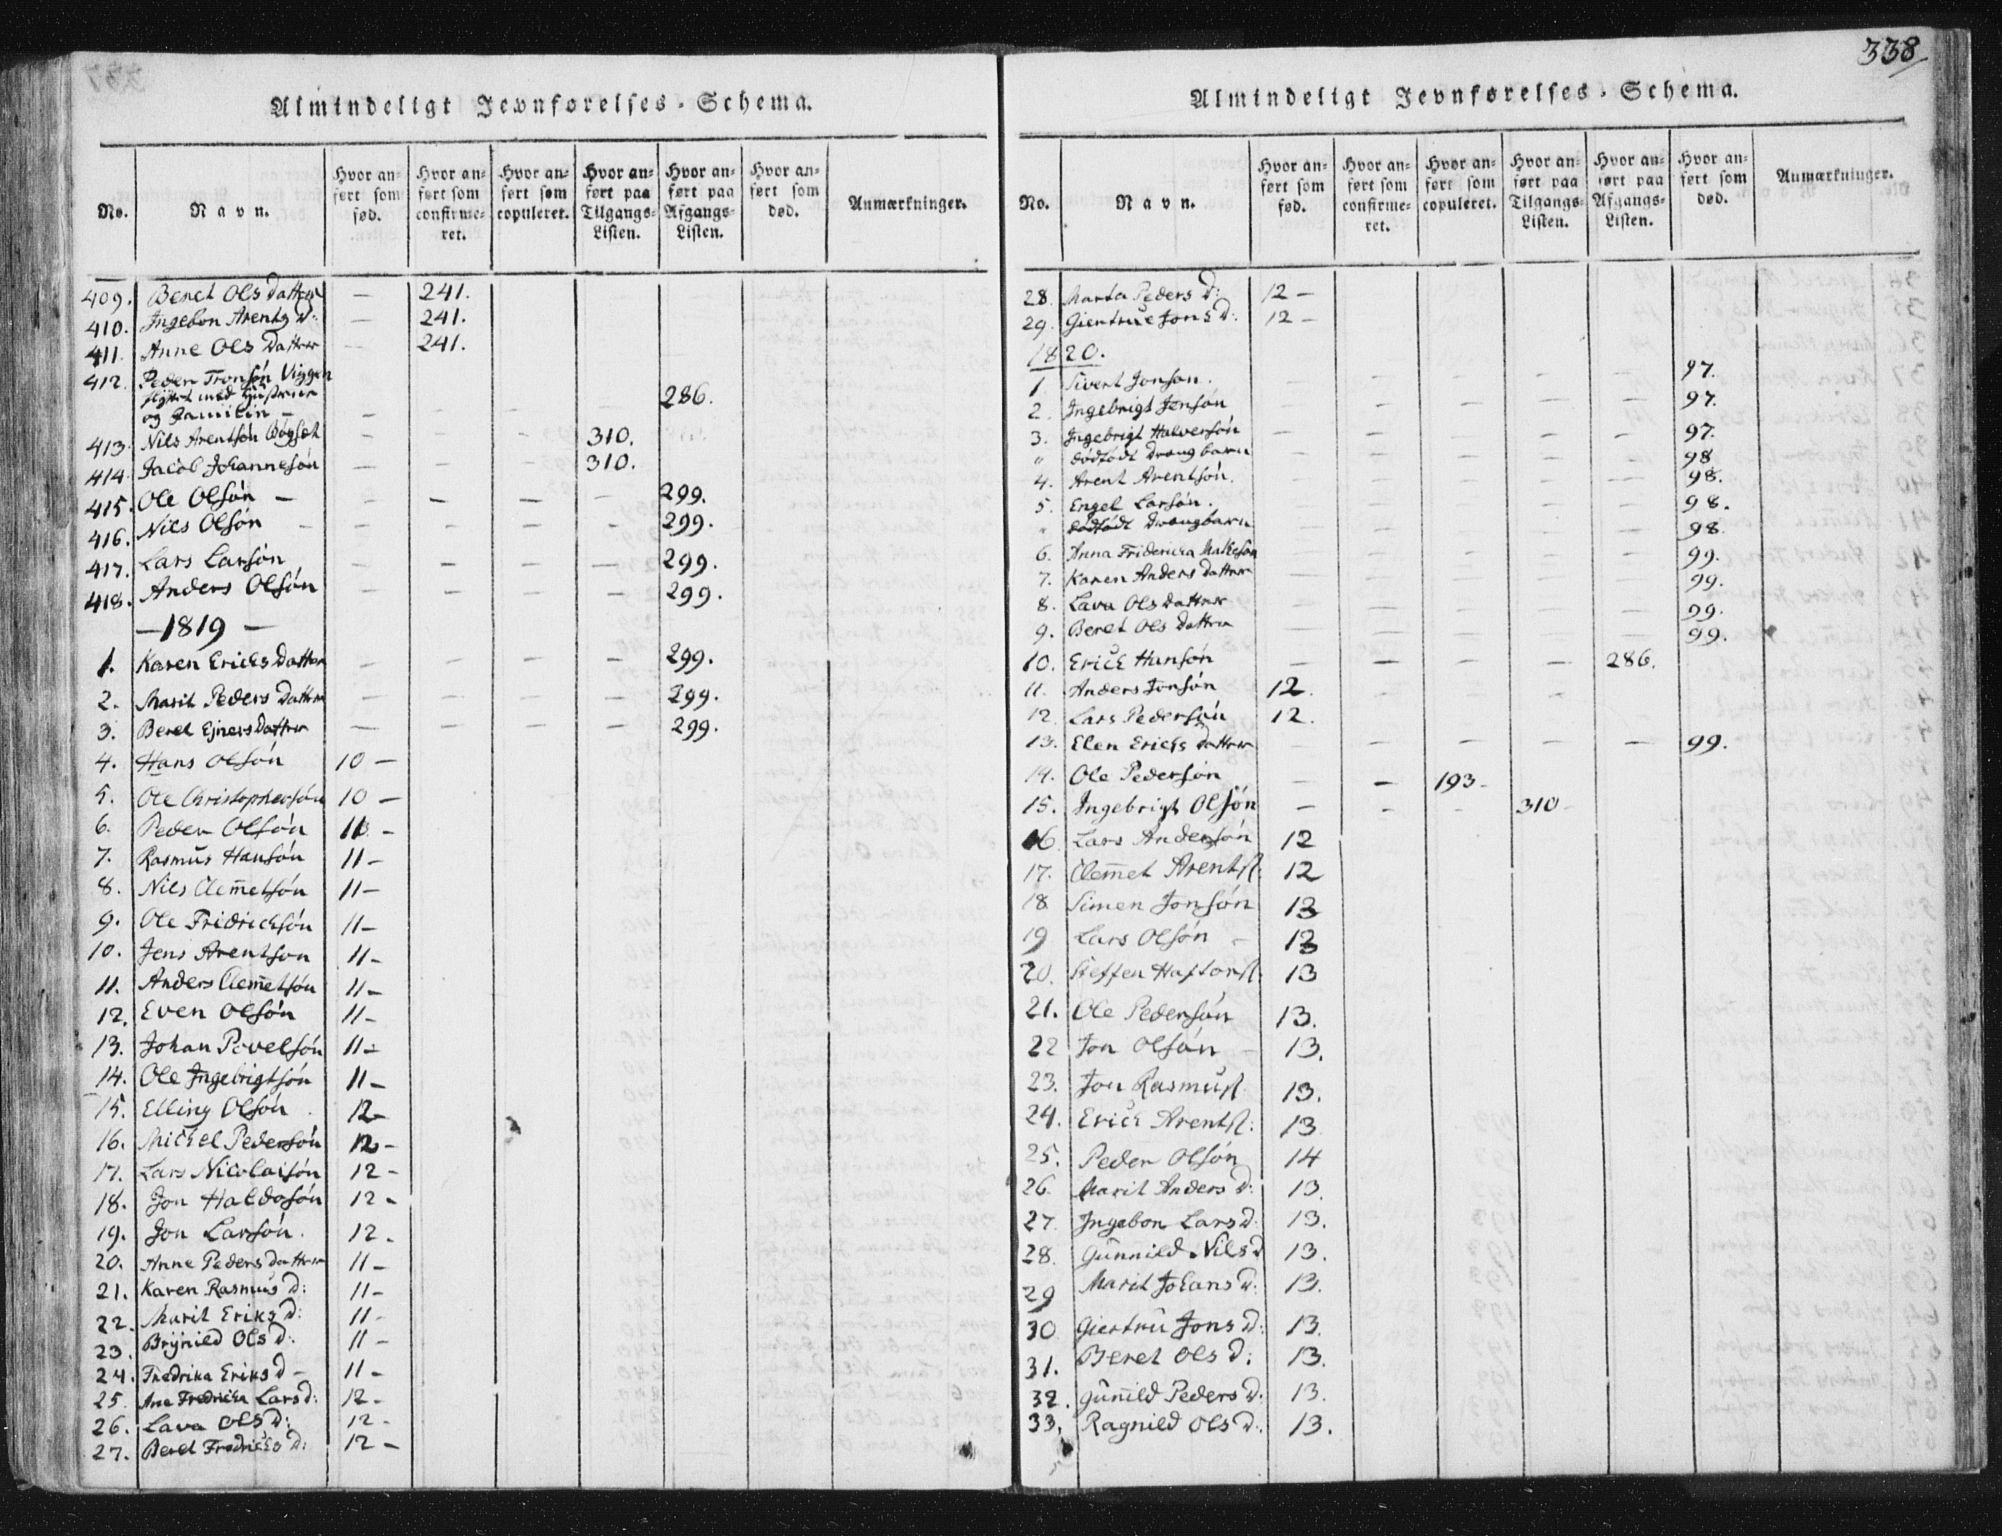 338
Almindeligt Jevnførelses-Schema.
No.
Navn.
Hvor anført som fød.
Hvor anført som confirmeret.
Hvor anført som copuleret.
Hvor anført paa Tilgangs-Listen.
Hvor anført paa Afgangs-Listen.
Hvor anført som død.
Anmærkninger.
409. Beret Ols Datter — 241.
410. Ingebor Arents D: — 241.
411. Anne Ols Datter — 241.
412. Peder Tronsøn Viggen
flyttet med Hustrue
og Familie — — — — — 286.
413. Nils Arentsøn Bøgset — — — 310.
414. Jacob Johannesøn — — — 310.
415. Ole Olsøn — — — — — 299.
416. Nils Olsøn — — — — — 299.
417. Lars Larsøn — — — — 299.
418. Anders Olsøn — — — — 299.
— 1819 —
1. Karen Erichs Datter — — — — 299.
2. Marit Peders Datter — — — — 299.
3. Beret Ejners Datter — — — — 299.
4. Hans Olsøn 10 —
5. Ole Christophersøn 10 —
6. Peder Olsøn 11 —
7. Rasmus Hansøn 11 —
8. Nils Clem̅etsøn 11 —
9. Ole Fridrichsøn 11 —
10. Jens Arentsøn 11 —
11. Anders Clem̅etsøn 11 —
12. Even Olsøn 11 —
13. Johan Povelsøn 11 —
14. Ole Ingebrigtsøn 11 —
15. Elling Olsøn 12 —
16. Michel Pedersøn 12 —
17. Lars Nicolaisøn 12 —
18. Jon Haldosøn 12 —
19. Jon Larsøn. 12 -
20. Anne Peders Datter 11 —
21. Karen Rasmus D: 11 —
22. Marit Eriks D: 11 -
23. Brynild Ols D: 11 —
24. Fredrika Eriks D — 11 —
25. Ane Fredricka Lars D: 12 —
26. Lava Ols D: 12 -
27. Beret Fredrichs D: 12 —
Almindeligt Jevnførelses-Schema.
No.
Navn.
Hvor anført som fød.
Hvor anført som confirmeret.
Hvor anført som copuleret.
Hvor anført paa Tilgangs-Listen.
Hvor anført paa Afgangs-Listen.
Hvor anført som død.
Anmærkninger.
28. Marta Peders D: 12 —
29. Giertrue Jons D: 12 —
1820.
1. Sivert Jonsøn. — — — — — 97.
2. Ingebrigt Jensøn — — — — — 97.
3. Ingebrigt Halversøn — — — — — 97.
" dødfødt Drengbarn — — — — — 98
4. Arent Arentsøn. — — — — — 98.
5. Engel Larsøn. — — — — — 98.
" dødfødt Drengbarn — — — — — 98.
6. Anna Fridericka — — — — — 99.
7. Karen Anders Datter — — — — — 99.
8. Lava Ols Datter — — — — — 99.
9. Beret Ols Datter — — — — — 99.
10. Erich Hansøn — — — — 286.
11. Anders Jonsøn 12.
12. Lars Pedersøn 12.
13. Elen Erichs Datter — — — — — 99.
14. Ole Pedersøn — — 193 -
15. Ingebrigt Olsøn — — — 310 -
16. Lars Andersøn 12
17. Clem̅et Arents. 12
18 Simen Jonsøn 13
19 Lars Olsøn — 13
20. Steffen Haftors. 13
21. Ole Pedersøn 13.
22 Jon Olsøn — 13.
23. Jon Rasmus. 13.
24. Erich Arents: 13
25. Peder Olsøn 14
26. Marit Anders D: 13.
27. Ingebor Lars D: 13.
28. Gunnild Nils D 13.
29 Marit Johans D: 13.
30 Giertru Jons D: 13.
31. Beret Ols D: 13.
32. Gun̅ild Peders D: 13.
33. Ragnild Ols D: 13.